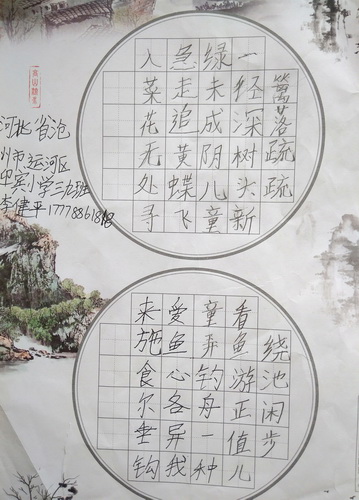 篱落疏疏
一经深树头新
绿未成阴儿童
急走追黄蝶飞
入菜花无处寻
河北省沧
州市运河区
迎宾小学三九班
李健平17778861818
绕池闲步
看鱼游正值儿
童弄钓舟一种
爱鱼心各异我
来施食尔垂钩